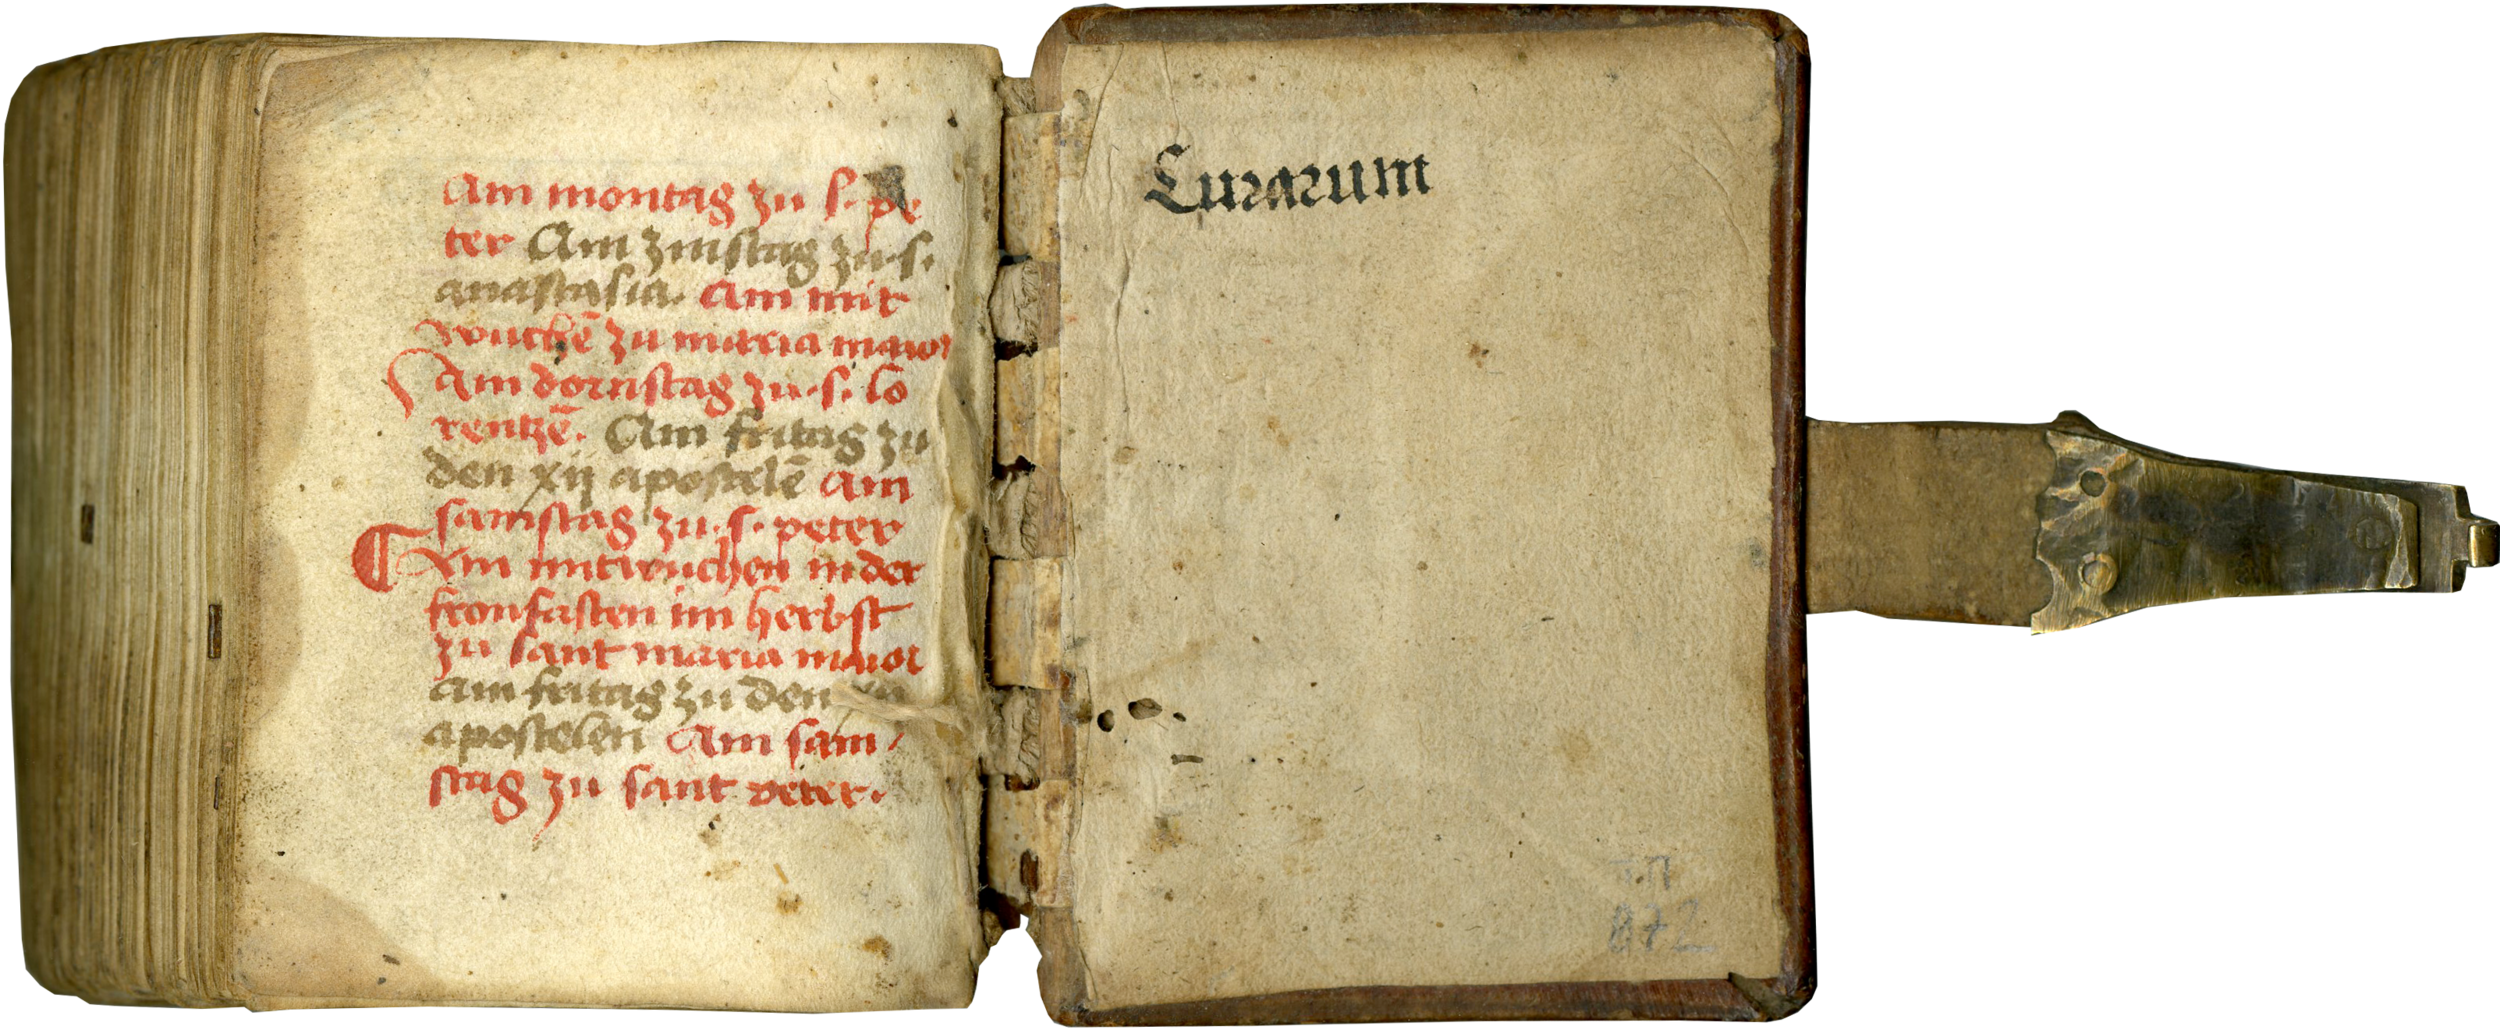 Am montag zu s. pe
ter Am zinstag zu .s.
anastasia. Am mit
wuchē zu maria maior
Am dornstag zu .s. lo
rentzē. Am fritag zu
den xij apostelē Am
samstag zu .s. peter
Am mitwuchen in der
fronfasten im herbst
zu sant maria maior
Am fritag zu den xij
apostelen Am sam/
stag zu sant peter.
872